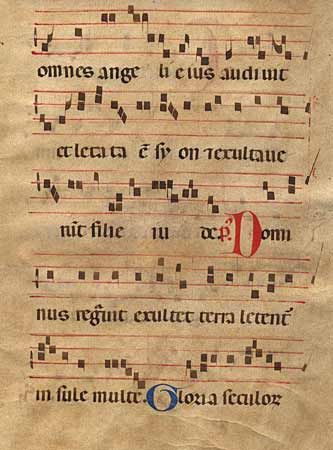 omnes ange li eius audiuit
et letata ē sy on ⁊ exultaue
rūt filie iu de ps̃ Domi
nus regͣuit exultet terra letentͬ
insule multe. Gloria seculoꝛ